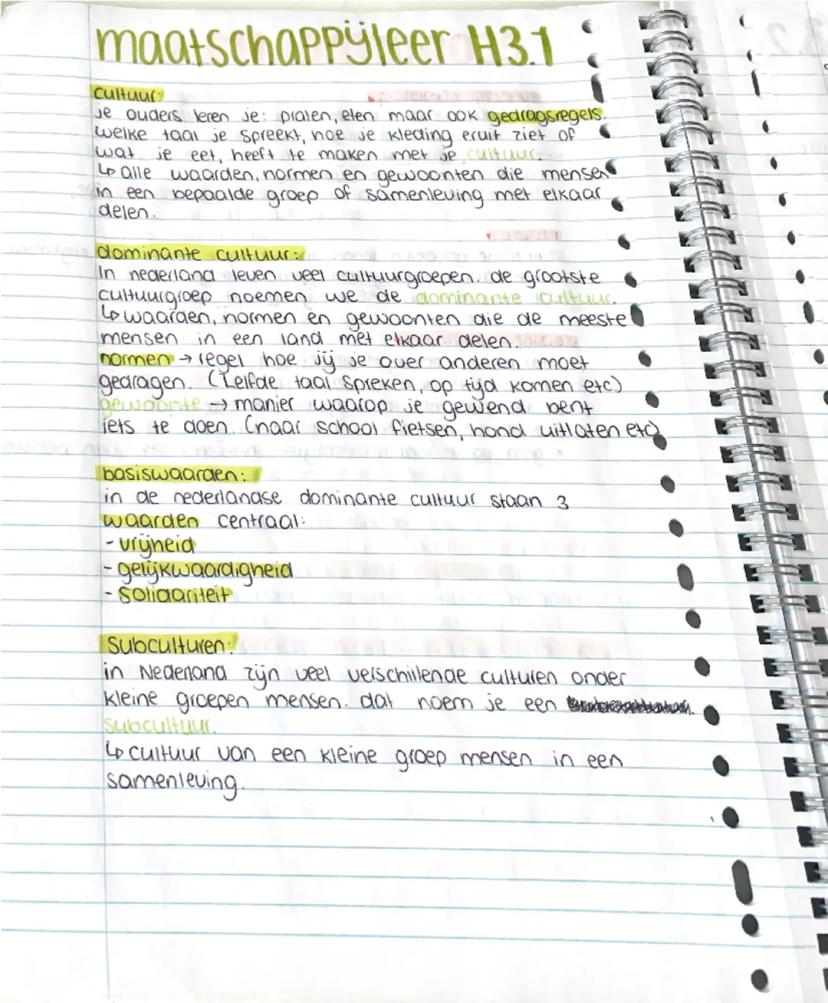 maatschappijleer H3.1
cultuur:
je ouders leren je: praten, eten maar ook gedragsregels.
welke taal je spreekt, hoe je kleding eruit ziet of
wat je eet, heeft te maken met je cultuur.
↳ alle waarden, normen en gewoonten die mensen
in een bepaalde groep of samenleving met elkaar
delen.
dominante cultuur:
in nederland leven veel cultuurgroepen. de grootste
cultuurgroep noemen we de dominante cultuur.
↳ waarden, normen en gewoonten die de meeste
mensen in een land met elkaar delen.
normen → regel hoe jij je over anderen moet
gedragen. (Zelfde taal spreken, op tijd komen etc)
gewoonte → manier waarop je gewend bent
iets te doen. (naar school fietsen, hond uitlaten etc)
basiswaarden:
in de nederlandse dominante cultuur staan 3
waarden centraal:
- vrijheid
- gelijkwaardigheid
- solidariteit
Subculturen:
in Nederland zijn veel verschillende culturen onder
kleine groepen mensen. dat noem je een
subcultuur.
↳ cultuur van een kleine groep mensen in een
samenleving.